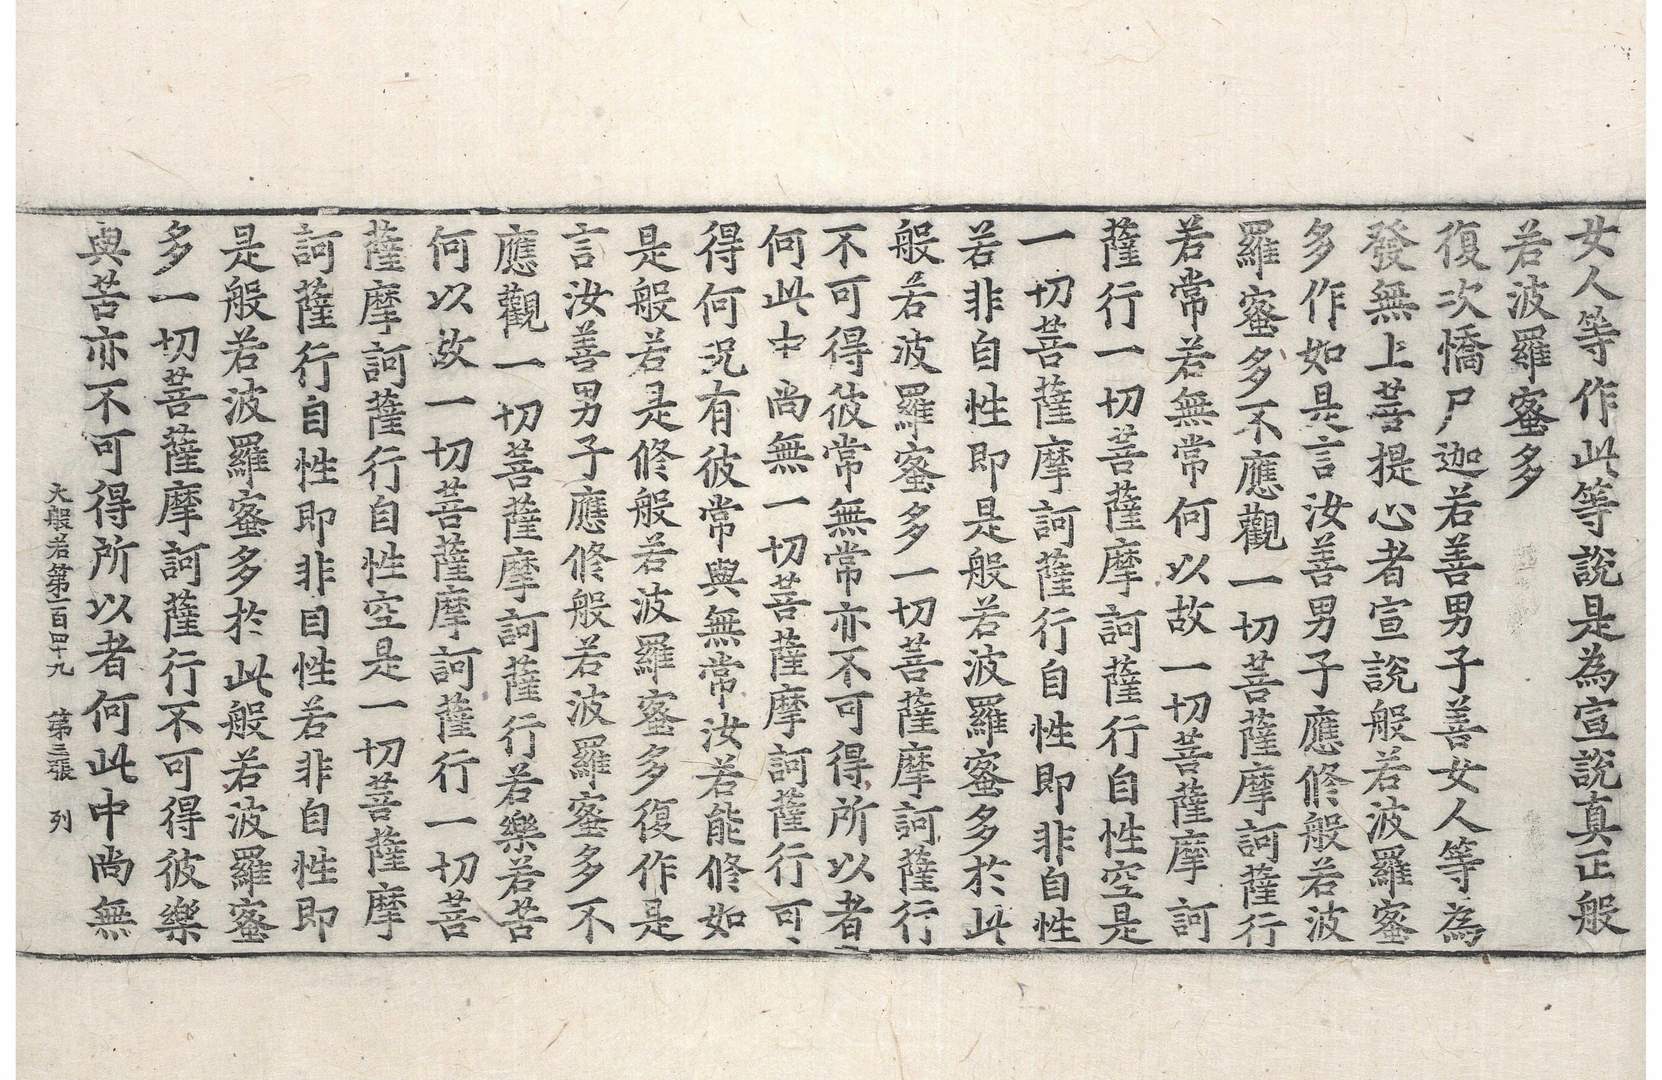 女人等作此等說是為宣說真正般
若波羅蜜多
復次憍尸迦若善男子善女人等為
發無上菩提心者宣說般若波羅蜜
多作如是言汝善男子應修般若波
羅蜜多不應觀一切菩薩摩訶薩行
若常若無常何以故一切菩薩摩訶
薩行一切菩薩摩訶薩行自性空是
一切菩薩摩訶薩行自性即非自性
若非自性即是般若波羅蜜多於此
般若波羅蜜多一切菩薩摩訶薩行
不可得彼常無常亦不可得所以者
何此中尚無一切菩薩摩訶薩行可
得何況有彼常與無常汝若能修如
是般若是修般若波羅蜜多復作是
言汝善男子應修般若波羅蜜多不
應觀一切菩薩摩訶薩行若樂若苦
何以故一切菩薩摩訶薩行一切菩
薩摩訶薩行自性空是一切菩薩摩
訶薩行自性即非自性若非自性即
是般若波羅蜜多於此般若波羅蜜
多一切菩薩摩訶薩行不可得彼樂
與苦亦不可得所以者何此中尚無
大般若第一百四十九 第三張 列